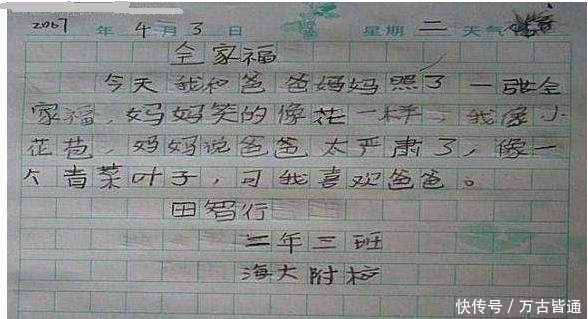 2007年4月3日 星期二 天气
全家福
今天我和爸爸妈妈照了一张全
家福，妈妈笑的像花一样，我像小
花苞，妈妈说爸爸太严肃了，像一
个青菜叶子，可我喜欢爸爸。
田智行
二年三班
海大附校
快传号/万古皆通